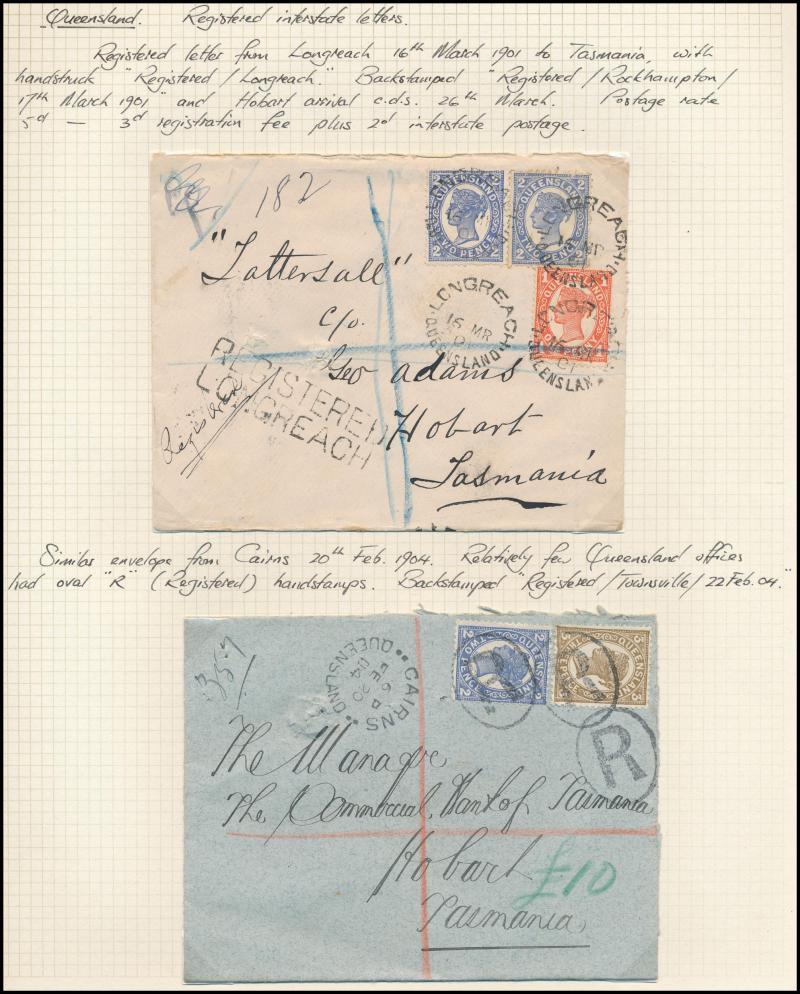 Queensland. Registered interstate letters.
Registered letter from Longreach 16th March 1901 to Tasmania, with
handstruck "Registered/Longreach." Backstamped "Registered/Rockhampton/
17th March 1901" and Hobart arrival c.d.s. 26th March. Postage rate
5d — 3d registration fee plus 2d interstate postage.
182
QUEENSLAND
TWO PENCE
2 2
QUEENSLAND
TWO PENCE
2 2
LONGREACH
16 MR
01
QUEENSLAND
"Tattersall"
LONGREACH
16 MR
01
QUEENSLAND
c/o.
Geo Adams
REGISTERED
LONGREACH
Registered
Hobart
Tasmania
Similar envelope from Cairns 20th Feb. 1904. Relatively few Queensland offices
had oval "R" (Registered) handstamps. Backstamped "Registered/Townsville/22 Feb. 04."
QUEENSLAND
TWO PENCE
2 2
QUEENSLAND
3 3
CAIRNS
6 P
FE 20
04
QUEENSLAND
R
The Manager
The Commercial Bank of Tasmania
Hobart
£10
Tasmania,